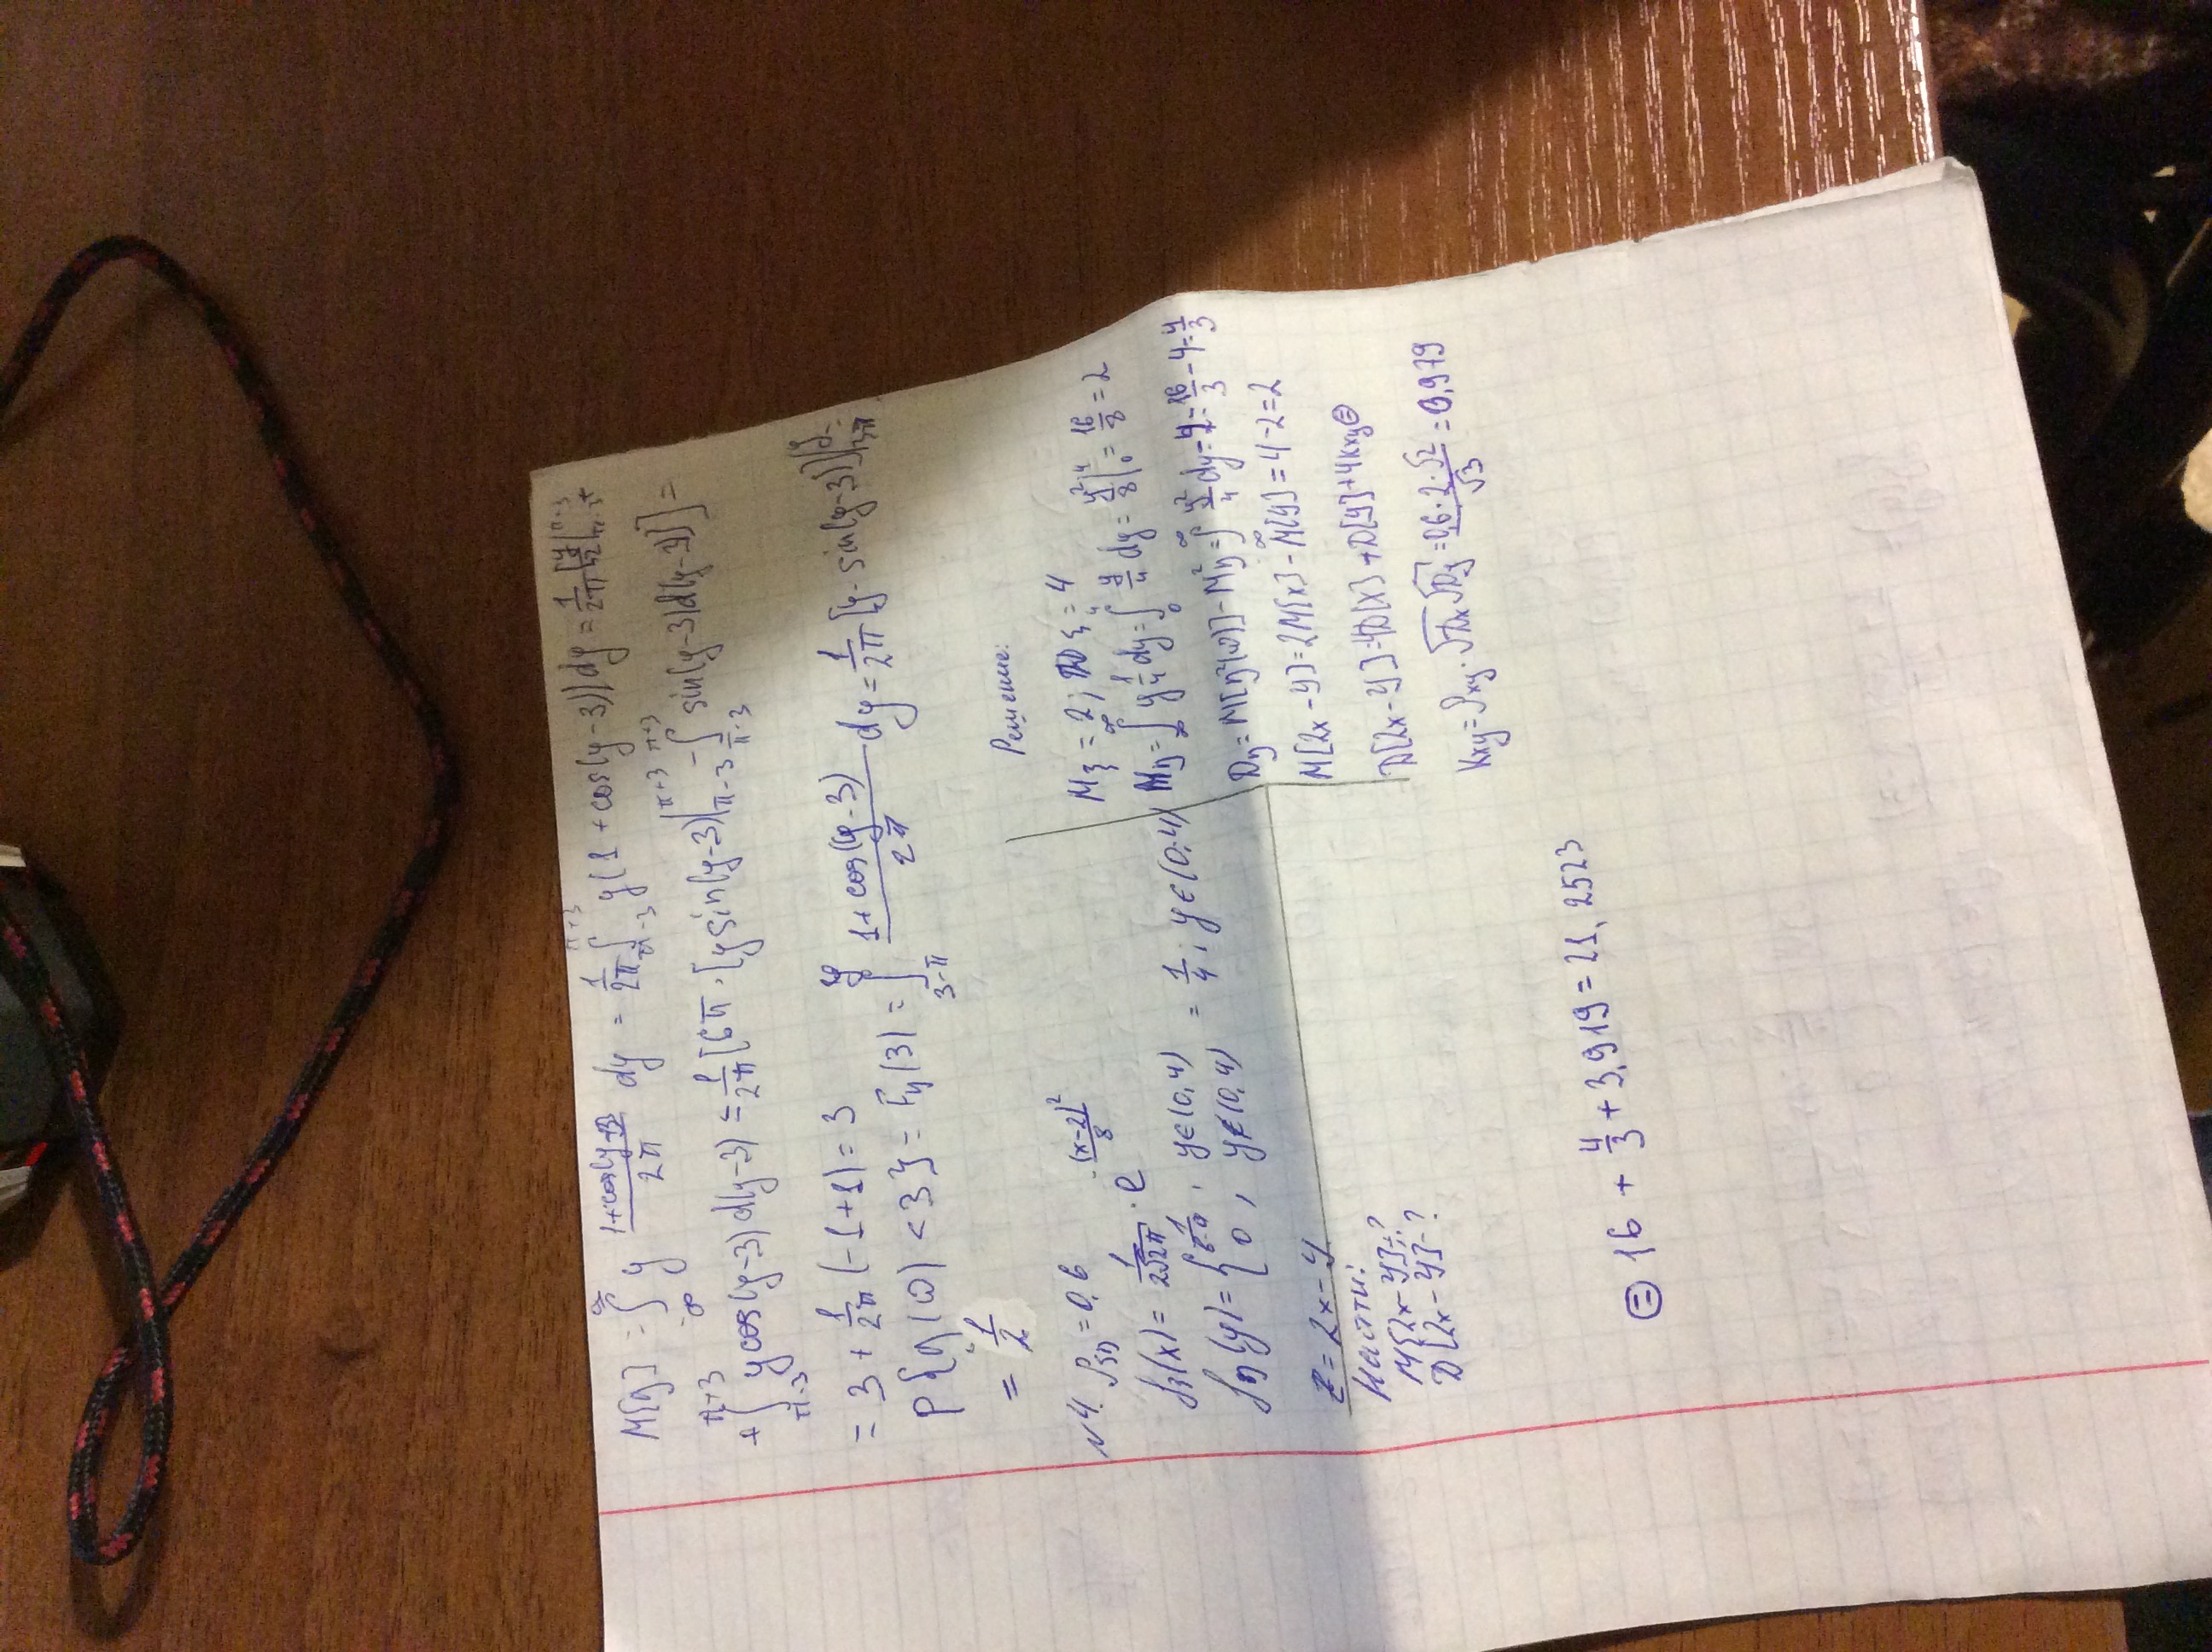 M[η] = ∫_{-∞}^{∞} y (1+cos(y-3))/2π dy = 1/2π ∫_{π-3}^{π+3} y(1+cos(y-3))dy = 1/2π [y²/2|_{π-3}^{π+3}
+ ∫_{π-3}^{π+3} y cos(y-3)d(y-3) = 1/2π [6π · [y sin(y-3)|_{π-3}^{π+3} - ∫_{π-3}^{π+3} sin(y-3)d(y-3)] =
= 3 + 1/2π (-1+1) = 3
P{η(ω) < 3} = F_y(3) = ∫_{3-π}^{y} (1+cos(y-3))/2π dy = 1/2π [y - sin(y-3)]
= 1/2
Решение:
N4. ρ_{ξη} = 0,6
f_ξ(x) = 1/(2√2π) · e^{-(x-2)²/8}
f_η(y) = { 1/(b-a), y∈(0,4)
0, y∉(0,4)
= 1/4; y∈(0;4)
z = 2x-y
Найти:
M[2x-y]-?
D[2x-y]-?
M_ξ = 2; D_ξ = 4
M_η = ∫_{-∞}^{∞} y 1/4 dy = ∫_0^4 y/4 dy = y²/8|_0^4 = 16/8 = 2
D_η = M[η²(ω)] - M²_η = ∫_{-∞}^{∞} y²/4 dy - 4 = 16/3 - 4 = 4/3
M[2x-y] = 2M[x] - M[y] = 4-2 = 2
D[2x-y] = 4D[x] + D[y] + 4Kxy ⊜
Kxy = ρxy · √Dx √Dy = 0,6·2·√2/√3 = 0,979
⊜ 16 + 4/3 + 3,919 = 21,2523